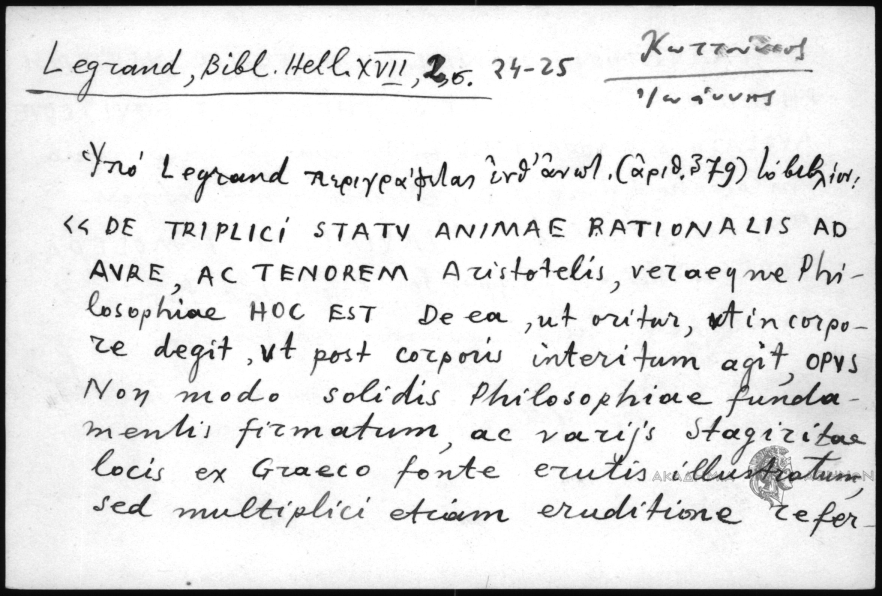 Legrand, Bibl. Hell. XVII, 2, σ. 24-25
Κωττούνιος
Ἰωάννης
Ὑπό Legrand περιγράφεται ἐνθ' ἀνωτ. (ἀριθ. 379) τό βιβλίον:
« DE TRIPLICI STATV ANIMAE RATIONALIS AD
AVRE, AC TENOREM Aristotelis, veraeque Phi-
losophiae HOC EST De ea, ut oritur, vt in corpo-
re degit, vt post corporis interitum agit, OPVS
Non modo solidis Philosophiae funda-
mentis firmatum, ac varijs Stagiritae
locis ex Graeco fonte erutis illustratum,
sed multiplici etiam eruditione refer-